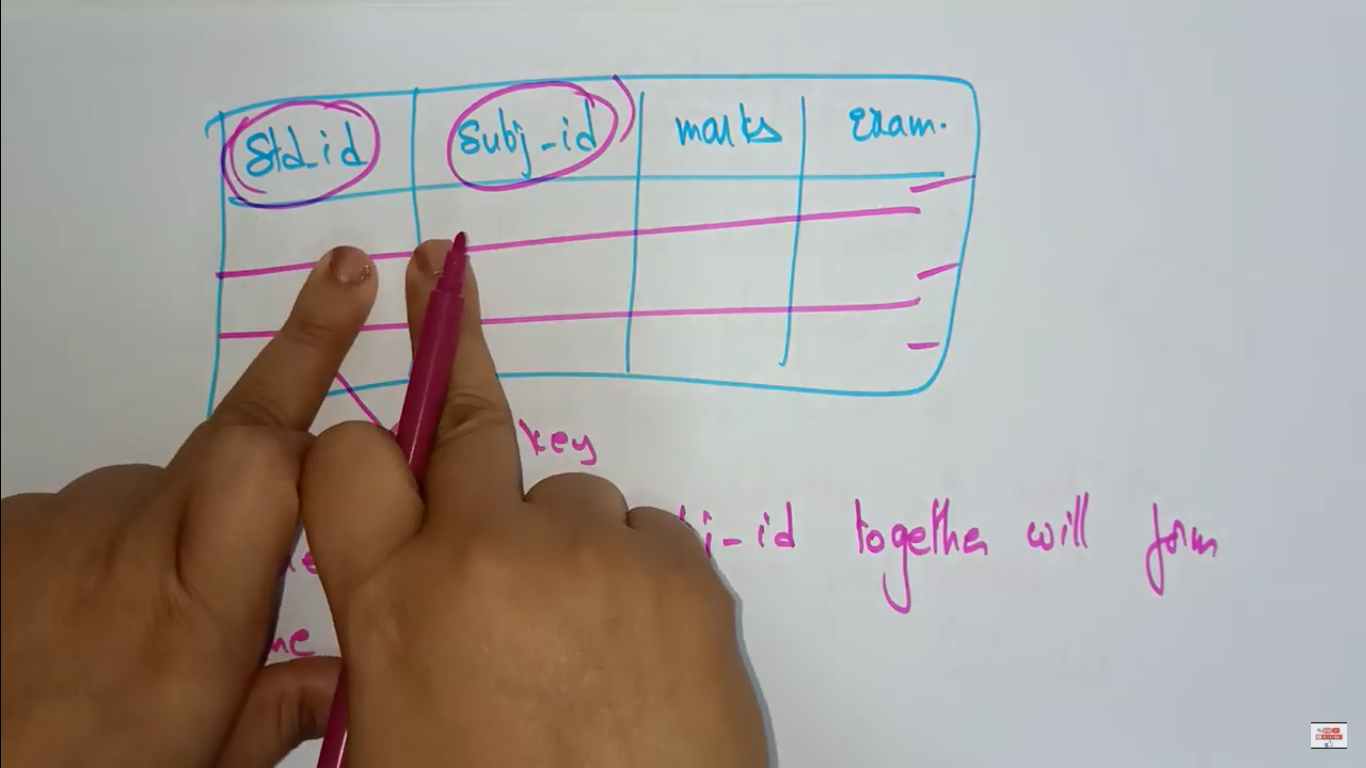 Std_id subj_id marks exam.
key
j-id together will form